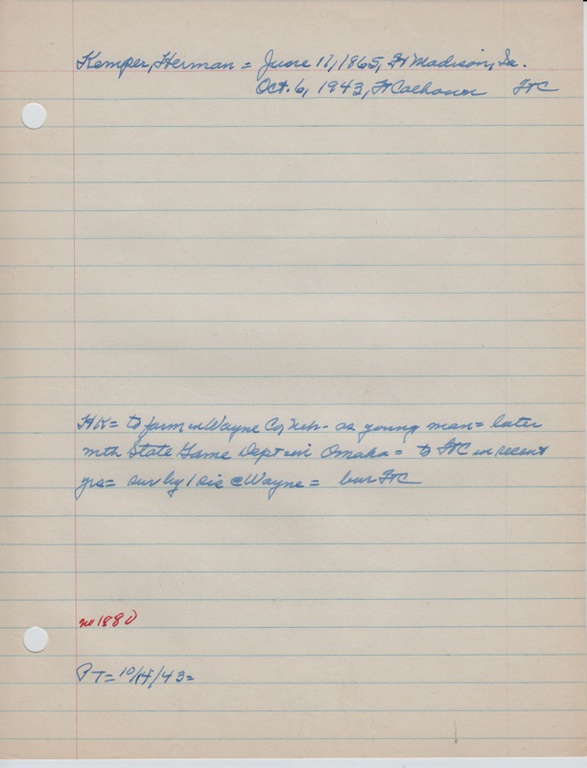 Kemper, Herman = June 17, 1865, Ft Madison, Ia.
Oct. 6, 1943, Ft Calhoun FtC
HK = to farm in Wayne Co, Neb - as young man = later
with State Game Dept in Omaha = to FtC in recent
yrs = sur by 1 sis @ Wayne = bur FtC
no 1880
PT = 10/14/43 =